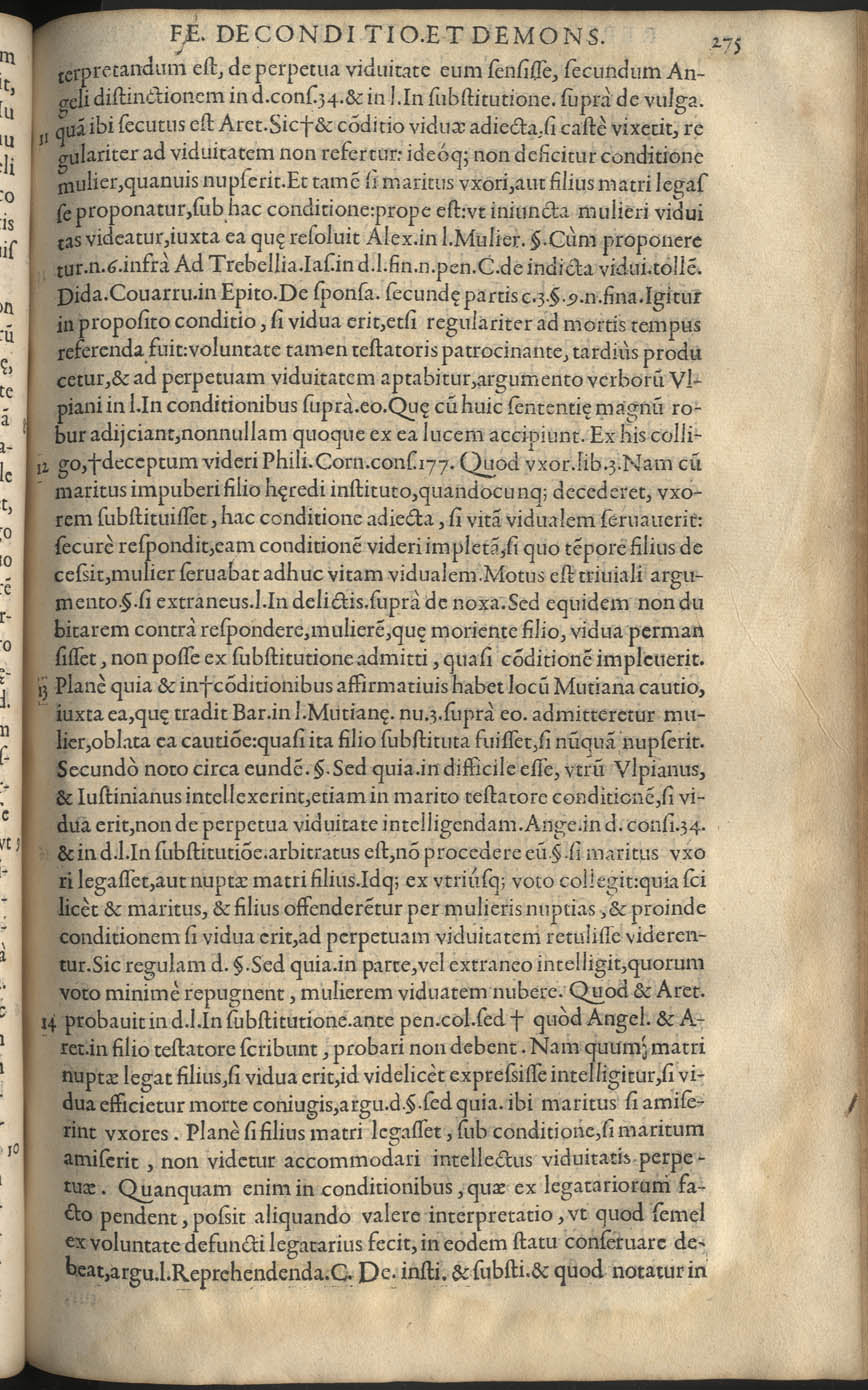 FF. DE CONDITIO. ET DEMONS. 275
terpretandum eſt, de perpetua viduitate eum ſenſiſſe, ſecundum An-
geli diſtinctionem in d.conſ.34.& in l.In ſubſtitutione. ſuprà de vulga.
11 quā ibi ſecutus eſt Aret.Sic†& cōditio viduæ adiecta,ſi caſtè vixerit, re
gulariter ad viduitatem non refertur: ideóq; non deficitur conditione
mulier,quanuis nupſerit.Et tamē ſi maritus vxori,aut filius matri legaſ
ſe proponatur,ſub hac conditione:prope eſt:vt iniuncta mulieri vidui
tas videatur,iuxta ea quę reſoluit Alex.in l.Mulier. §.Cùm proponere
tur.n.6.infrà Ad Trebellia.Iaſ.in d.l.fin.n.pen.C.de indicta vidui.tollē.
Dida.Couarru.in Epito.De ſponſa. ſecundę partis c.3.§.9.n.fina.Igitur
in propoſito conditio, ſi vidua erit,etſi regulariter ad mortis tempus
referenda fuit:voluntate tamen teſtatoris patrocinante, tardiùs produ
cetur,& ad perpetuam viduitatem aptabitur,argumento verborū Vl-
piani in l.In conditionibus ſuprà.eo.Quę cū huic ſententię magnū ro-
bur adijciant,nonnullam quoque ex ea lucem accipiunt. Ex his colli-
12 go,†deceptum videri Phili.Corn.conſ.177. Quod vxor.lib.3.Nam cū
maritus impuberi filio hęredi inſtituto,quandocunq; decederet, vxo-
rem ſubſtituiſſet, hac conditione adiecta, ſi vitā vidualem ſeruauerit:
ſecurè reſpondit,eam conditionē videri impletā,ſi quo tēpore filius de
ceſsit,mulier ſeruabat adhuc vitam vidualem.Motus eſt triuiali argu-
mento.§.ſi extraneus.l.In delictis.ſuprà de noxa.Sed equidem non du
bitarem contrà reſpondere,mulierē,quę moriente filio, vidua perman
ſiſſet, non poſſe ex ſubſtitutione admitti, quaſi cōditionē impleuerit.
13 Planè quia & in†cōditionibus affirmatiuis habet locū Mutiana cautio,
iuxta ea,quę tradit Bar.in l.Mutianę. nu.3.ſuprà eo. admitteretur mu-
lier,oblata ea cautiōe:quaſi ita filio ſubſtituta fuiſſet,ſi nūquā nupſerit.
Secundò noto circa eundē.§.Sed quia.in difficile eſſe, vtrū Vlpianus,
& Iuſtinianus intellexerint,etiam in marito teſtatore conditionē,ſi vi-
dua erit,non de perpetua viduitate intelligendam.Ange.in d. conſi.34.
& in d.l.In ſubſtitutiōe.arbitratus eſt,nō procedere eū.§.ſi maritus vxo
ri legaſſet,aut nuptæ matri filius.Idq; ex vtriúſq; voto collegit:quia ſci
licèt & maritus, & filius offenderētur per mulieris nuptias, & proinde
conditionem ſi vidua erit,ad perpetuam viduitatem retuliſſe videren-
tur.Sic regulam d. §.Sed quia.in parte,vel extraneo intelligit,quorum
voto minimè repugnent, mulierem viduatem nubere. Quod & Aret.
14 probauit in d.l.In ſubſtitutione.ante pen.col.ſed † quòd Angel. & A-
ret.in filio teſtatore ſcribunt, probari non debent. Nam quum matri
nuptæ legat filius,ſi vidua erit,id videlicèt expreſsiſſe intelligitur,ſi vi-
dua efficietur morte coniugis,argu.d.§.ſed quia. ibi maritus ſi amiſe-
rint vxores. Planè ſi filius matri legaſſet, ſub conditione,ſi maritum
amiſerit, non videtur accommodari intellectus viduitatis perpe-
tuæ. Quanquam enim in conditionibus, quæ ex legatariorum fa-
cto pendent, poſsit aliquando valere interpretatio, vt quod ſemel
ex voluntate defuncti legatarius fecit, in eodem ſtatu conſeruare de-
beat,argu.l.Reprehendenda.C. De. inſti. & ſubſti.& quod notatur in